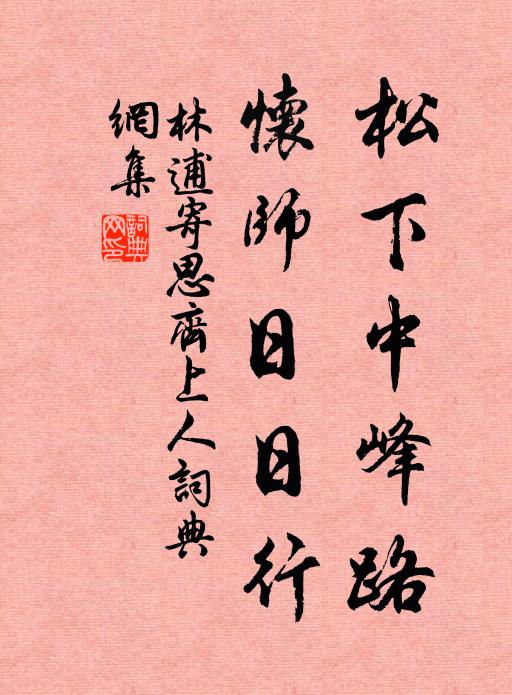 松下中峰路
懷師日日行
林逋寄思齊上人詞典
網集
詞典
网印